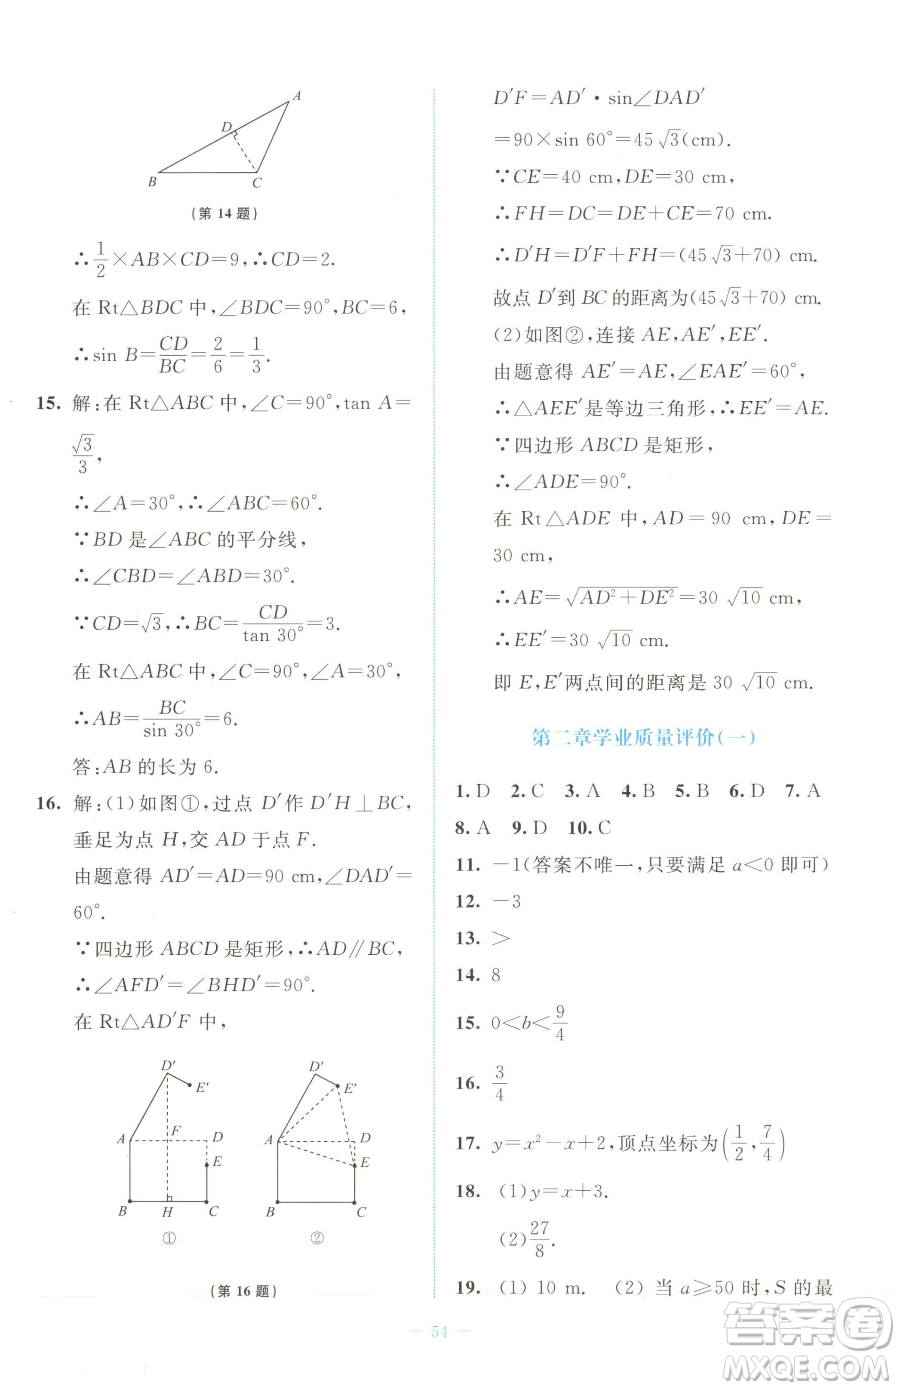 A
D
B
C
(第 14 题)
∴1/2×AB×CD=9,∴CD=2.
在 Rt△BDC 中,∠BDC=90°,BC=6,
∴sin B=CD/BC=2/6=1/3.
15. 解:在 Rt△ABC 中,∠C=90°,tan A=
√3/3,
∴∠A=30°,∴∠ABC=60°.
∵BD 是∠ABC 的平分线,
∴∠CBD=∠ABD=30°.
∵CD=√3,∴BC=CD/tan 30°=3.
在 Rt△ABC 中,∠C=90°,∠A=30°,
∴AB=BC/sin 30°=6.
答:AB 的长为 6.
16. 解:(1)如图①,过点 D′作 D′H⊥BC,
垂足为点 H,交 AD 于点 F.
由题意得 AD′=AD=90 cm,∠DAD′=
60°.
∵四边形 ABCD 是矩形,∴AD∥BC,
∴∠AFD′=∠BHD′=90°.
在 Rt△AD′F 中,
D′
E′
A
F
D
E
B
H
C
①
D′
E′
A
D
E
B
C
②
(第 16 题)
D′F=AD′·sin∠DAD′
=90×sin 60°=45√3(cm).
∵CE=40 cm,DE=30 cm,
∴FH=DC=DE+CE=70 cm.
∴D′H=D′F+FH=(45√3+70) cm.
故点 D′到 BC 的距离为(45√3+70) cm.
(2)如图②,连接 AE,AE′,EE′.
由题意得 AE′=AE,∠EAE′=60°,
∴△AEE′是等边三角形,∴EE′=AE.
∵四边形 ABCD 是矩形,
∴∠ADE=90°.
在 Rt△ADE 中,AD=90 cm,DE=
30 cm,
∴AE=√(AD²+DE²)=30 √10 cm,
∴EE′=30 √10 cm.
即 E,E′两点间的距离是 30 √10 cm.
第二章学业质量评价(一)
1. D 2. C 3. A 4. B 5. B 6. D 7. A
8. A 9. D 10. C
11. -1(答案不唯一,只要满足 a<0 即可)
12. -3
13. >
14. 8
15. 0<b<9/4
16. 3/4
17. y=x²-x+2,顶点坐标为(1/2,7/4)
18. (1)y=x+3.
(2)27/8.
19. (1) 10 m. (2) 当 a≥50 时,S 的最
— 54 —
答案圈
MXQE.COM